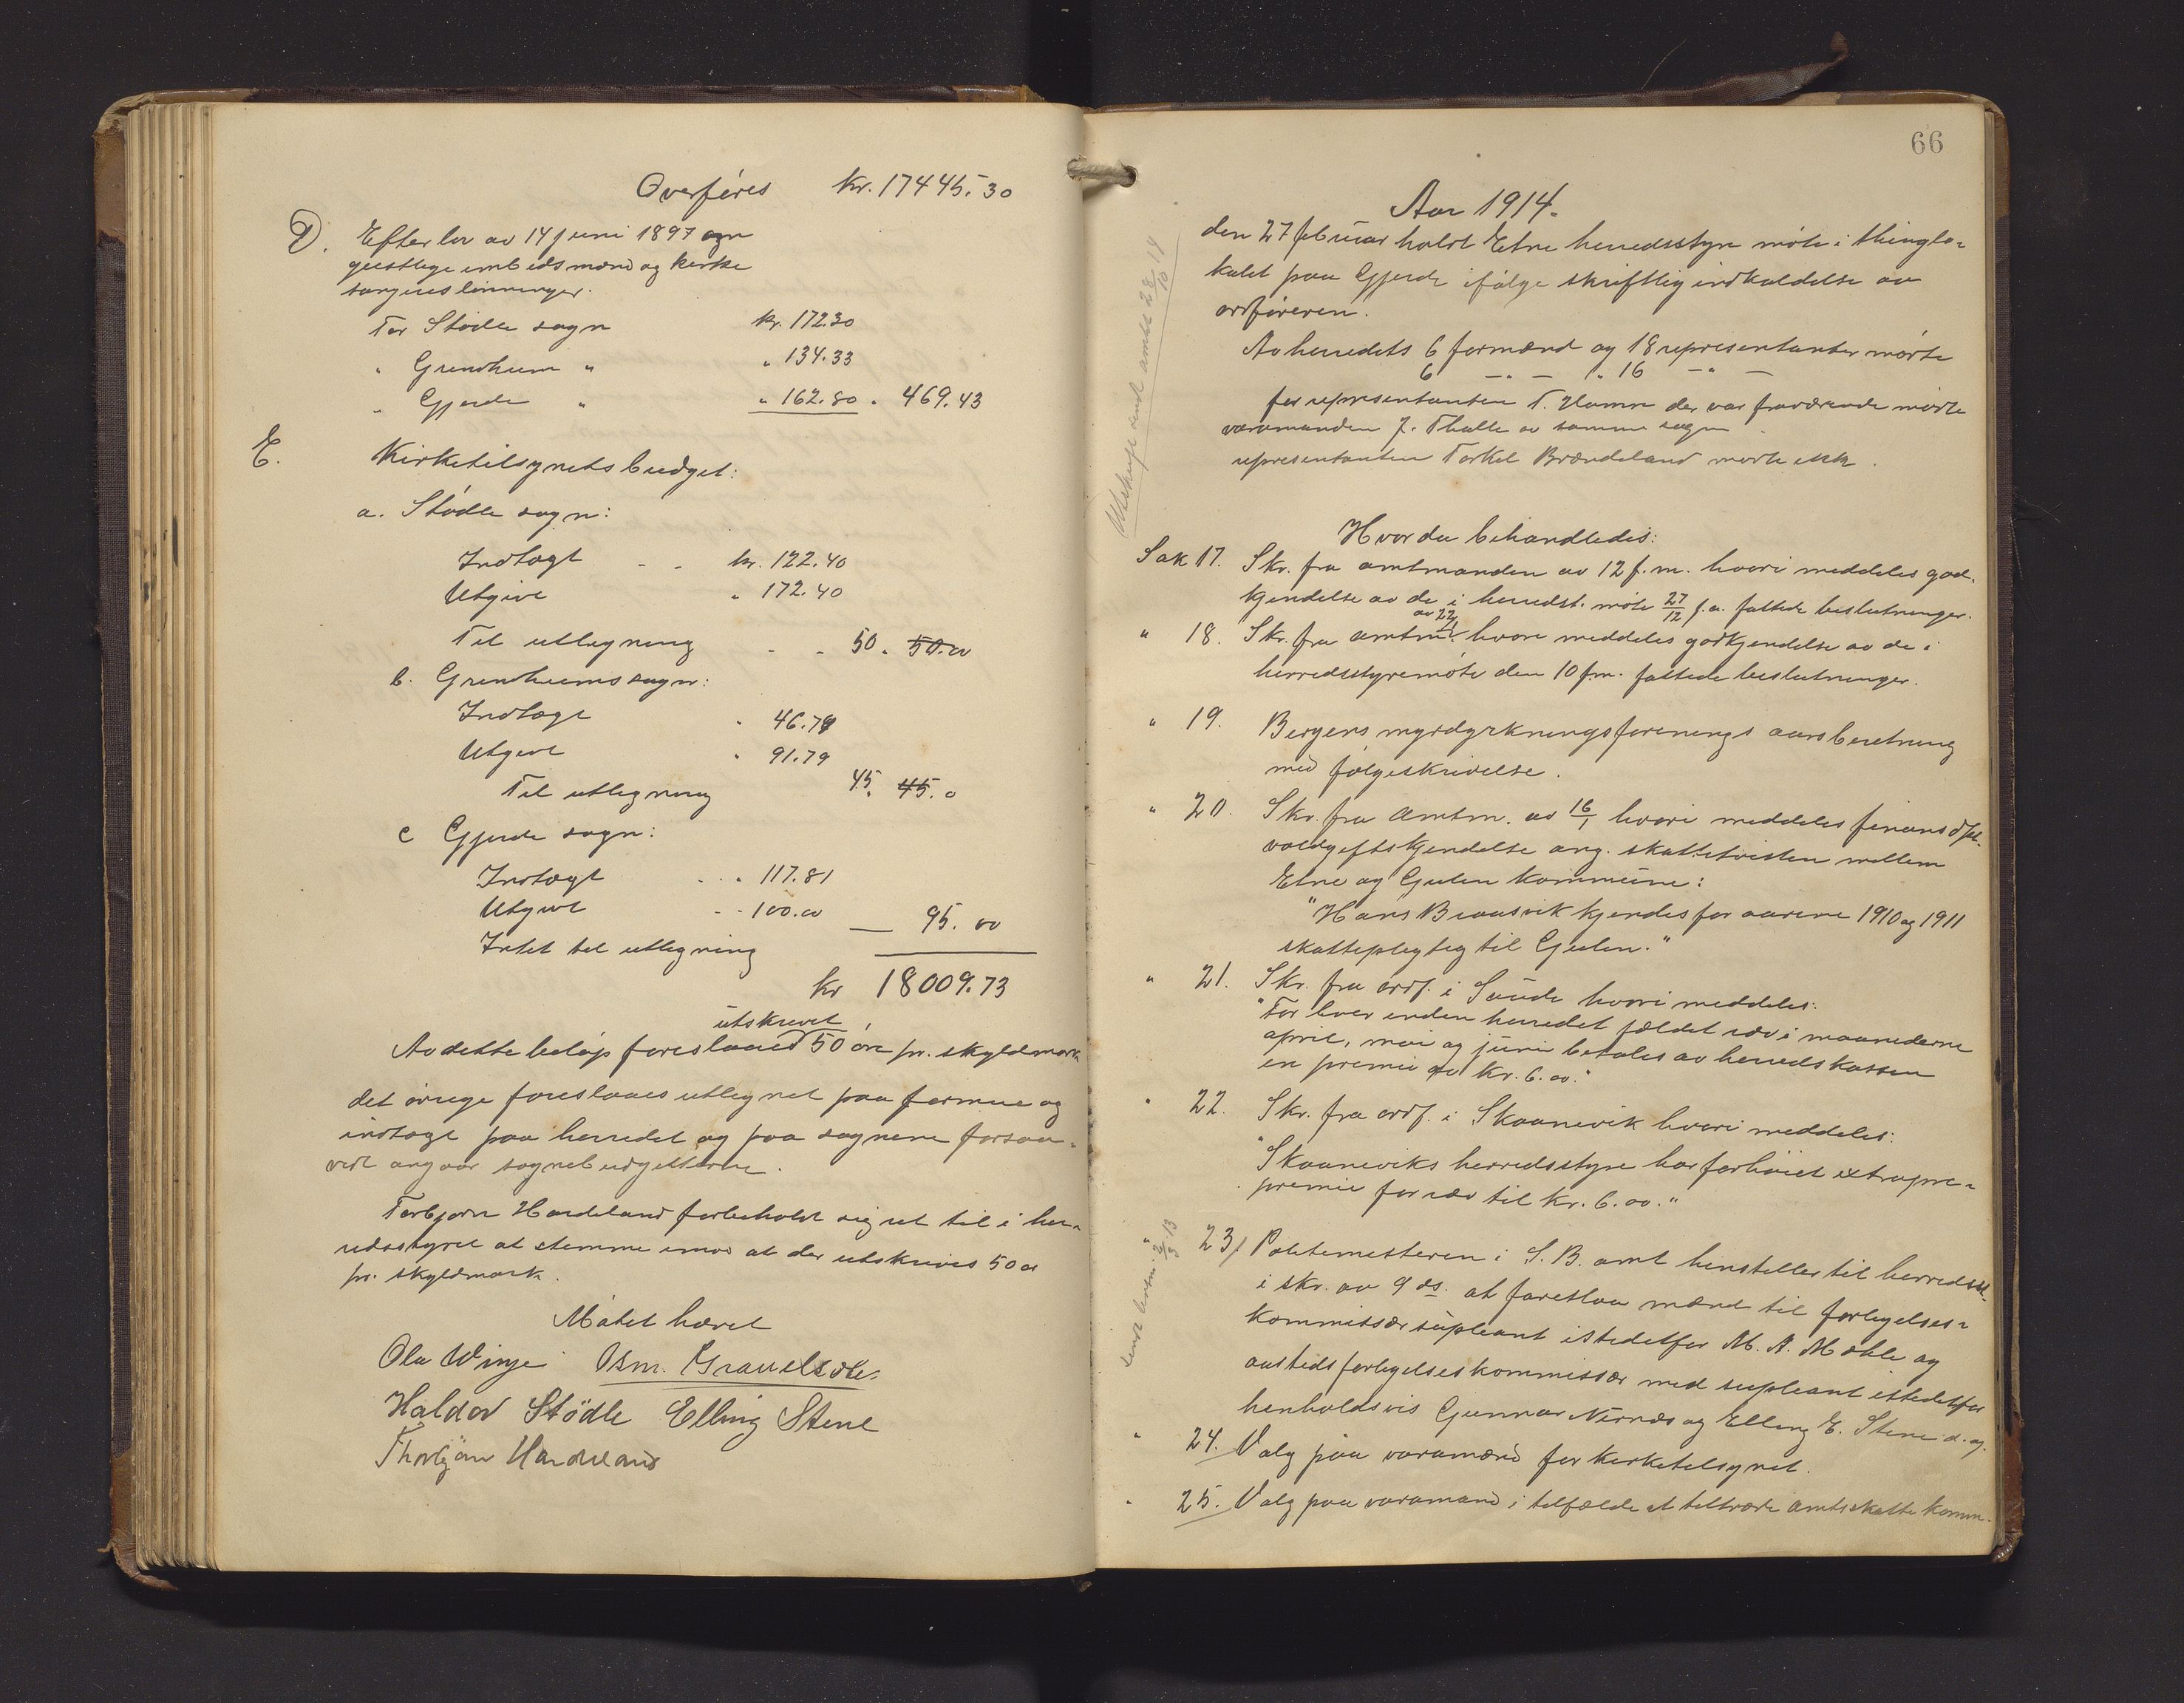 Overføres Kr. 17445.30
D. Efter lov av 14 juni 1897 om
geistlige embedsmænd og kirke
sangeres lønninger.
For Stødle sogn kr. 172.30
" Grindheim " " 134.33
" Gjerde " " 162.80 " 469.43
E. Kirketilsynets budget:
a. Stødle sogn:
Indtægt - - kr. 122.40
Utgivt " 172.40
Til utlegning - - 50. 50.00
b. Grindheims sogn:
Indtægt " 46.79
Utgivt " 91.79
Til utlegning 45. 45.0
c Gjerde sogn:
Indtægt - - " 117.81
Utgivt - - 100.00 — 95.00
Intet til utlegning
kr 18009.73
utskrevet
Av dette beløp foreslaaes 50 øre pr. skyldmark
det øvrige foreslaaes utlegnet paa formue og
indtægt paa herredet og paa sognene forsaa-
vidt angaar sognebudgetterne.
Torbjørn Hardeland forbeholdt sig ret til i her-
redsstyret at stemme imod at der utskrives 50 ør
pr. skyldmark.
Møtet hævet
Ola Winje Osm. Grauelsæte.
Haldor Stödle Elling Stene
Thorbjörn Hardeland
66
Aar 1914.
den 27 februar holdt Etne herredsstyre møte i thinglo-
kalet paa Gjerde ifølge skriftlig indkaldelse av
ordføreren.
Av herredets 6 formænd og 18 representanter møtte
6 — " — " 16 — " —
for representanten T. Hamre der var fraværende møtte
varamanden J. Thalle av samme sogn.
representanten Torkel Brændeland møtte ikke.
Utskrift sendt amtet 28/10 14
Hvor da behandledes:
Sak 17. Skr. fra amtmanden av 12 f.m. hvori meddeles god-
kjendelse av de i herredst. møte 27/12 f.a. fattede beslutninger.
av 22/1
" 18. Skr. fra amtm. hvori meddeles godkjendelse av de i
herredsstyremøte den 10 f.m. fattede beslutninger.
" 19. Bergens myrdyrkningsforenings aarsberetning
med følgeskrivelse.
" 20. Skr. fra Amtm. av 16/1 hvori meddeles finansdpt.
voldgiftskjendelse ang. skattetvisten mellem
Etne og Gulen kommune:
"Hans Braasvik kjendes for aarene 1910 og 1911
skattepligtig til Gulen."
" 21. Skr. fra ordf. i Saude hvori meddeles:
"For hver inden herredet fældet ræv i maanederne
april, mai og juni betales av herredskassen
en premie av kr. 6.00."
" 22. Skr. fra ordf. i Skaanevik hvori meddeles:
"Skaaneviks herredsstyre har forhøiet extrapre-
premie for ræv til kr. 6.00."
" 23/ Politimesteren i S. B. amt henstiller til herredsst.
i skr. av 9 ds. at foreslaa mænd til forlegelses-
kommissærsupleant istedetfor M. A. Mæhle og
avstedsforlegelseskommissær med supleant istedetfor
henholdsvis Gunnar Nernæs og Elling E. Stene d. æ.
" 24. Valg paa varamænd for kirketilsynet.
" 25. Valg paa varamand i tilfælde at tiltræde Amtsskatte komm.